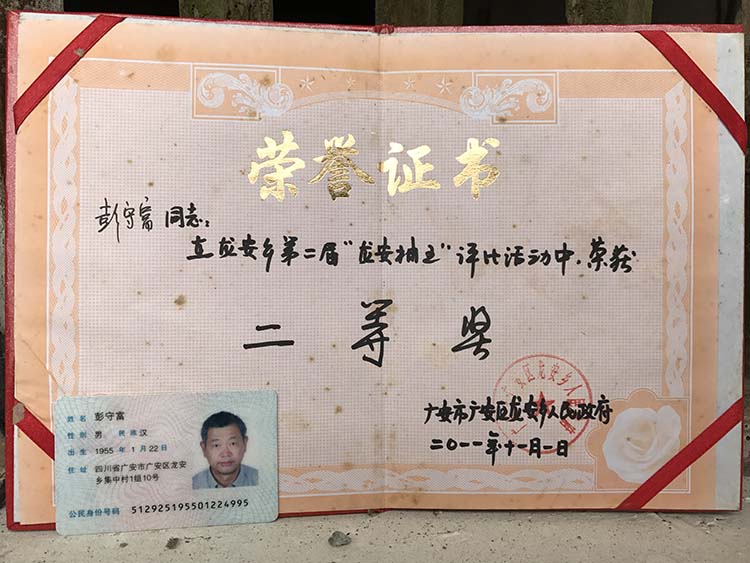 荣誉证书
彭守富同志：
在龙安乡第二届“龙安柚王”评比活动中，荣获
二等奖
广安市广安区龙安乡人民政府
二〇一一年十一月一日
姓名 彭守富
性别 男 民族 汉
出生 1955年1月22日
住址 四川省广安市广安区龙安
乡集中村1组10号
公民身份号码 512925195501224995